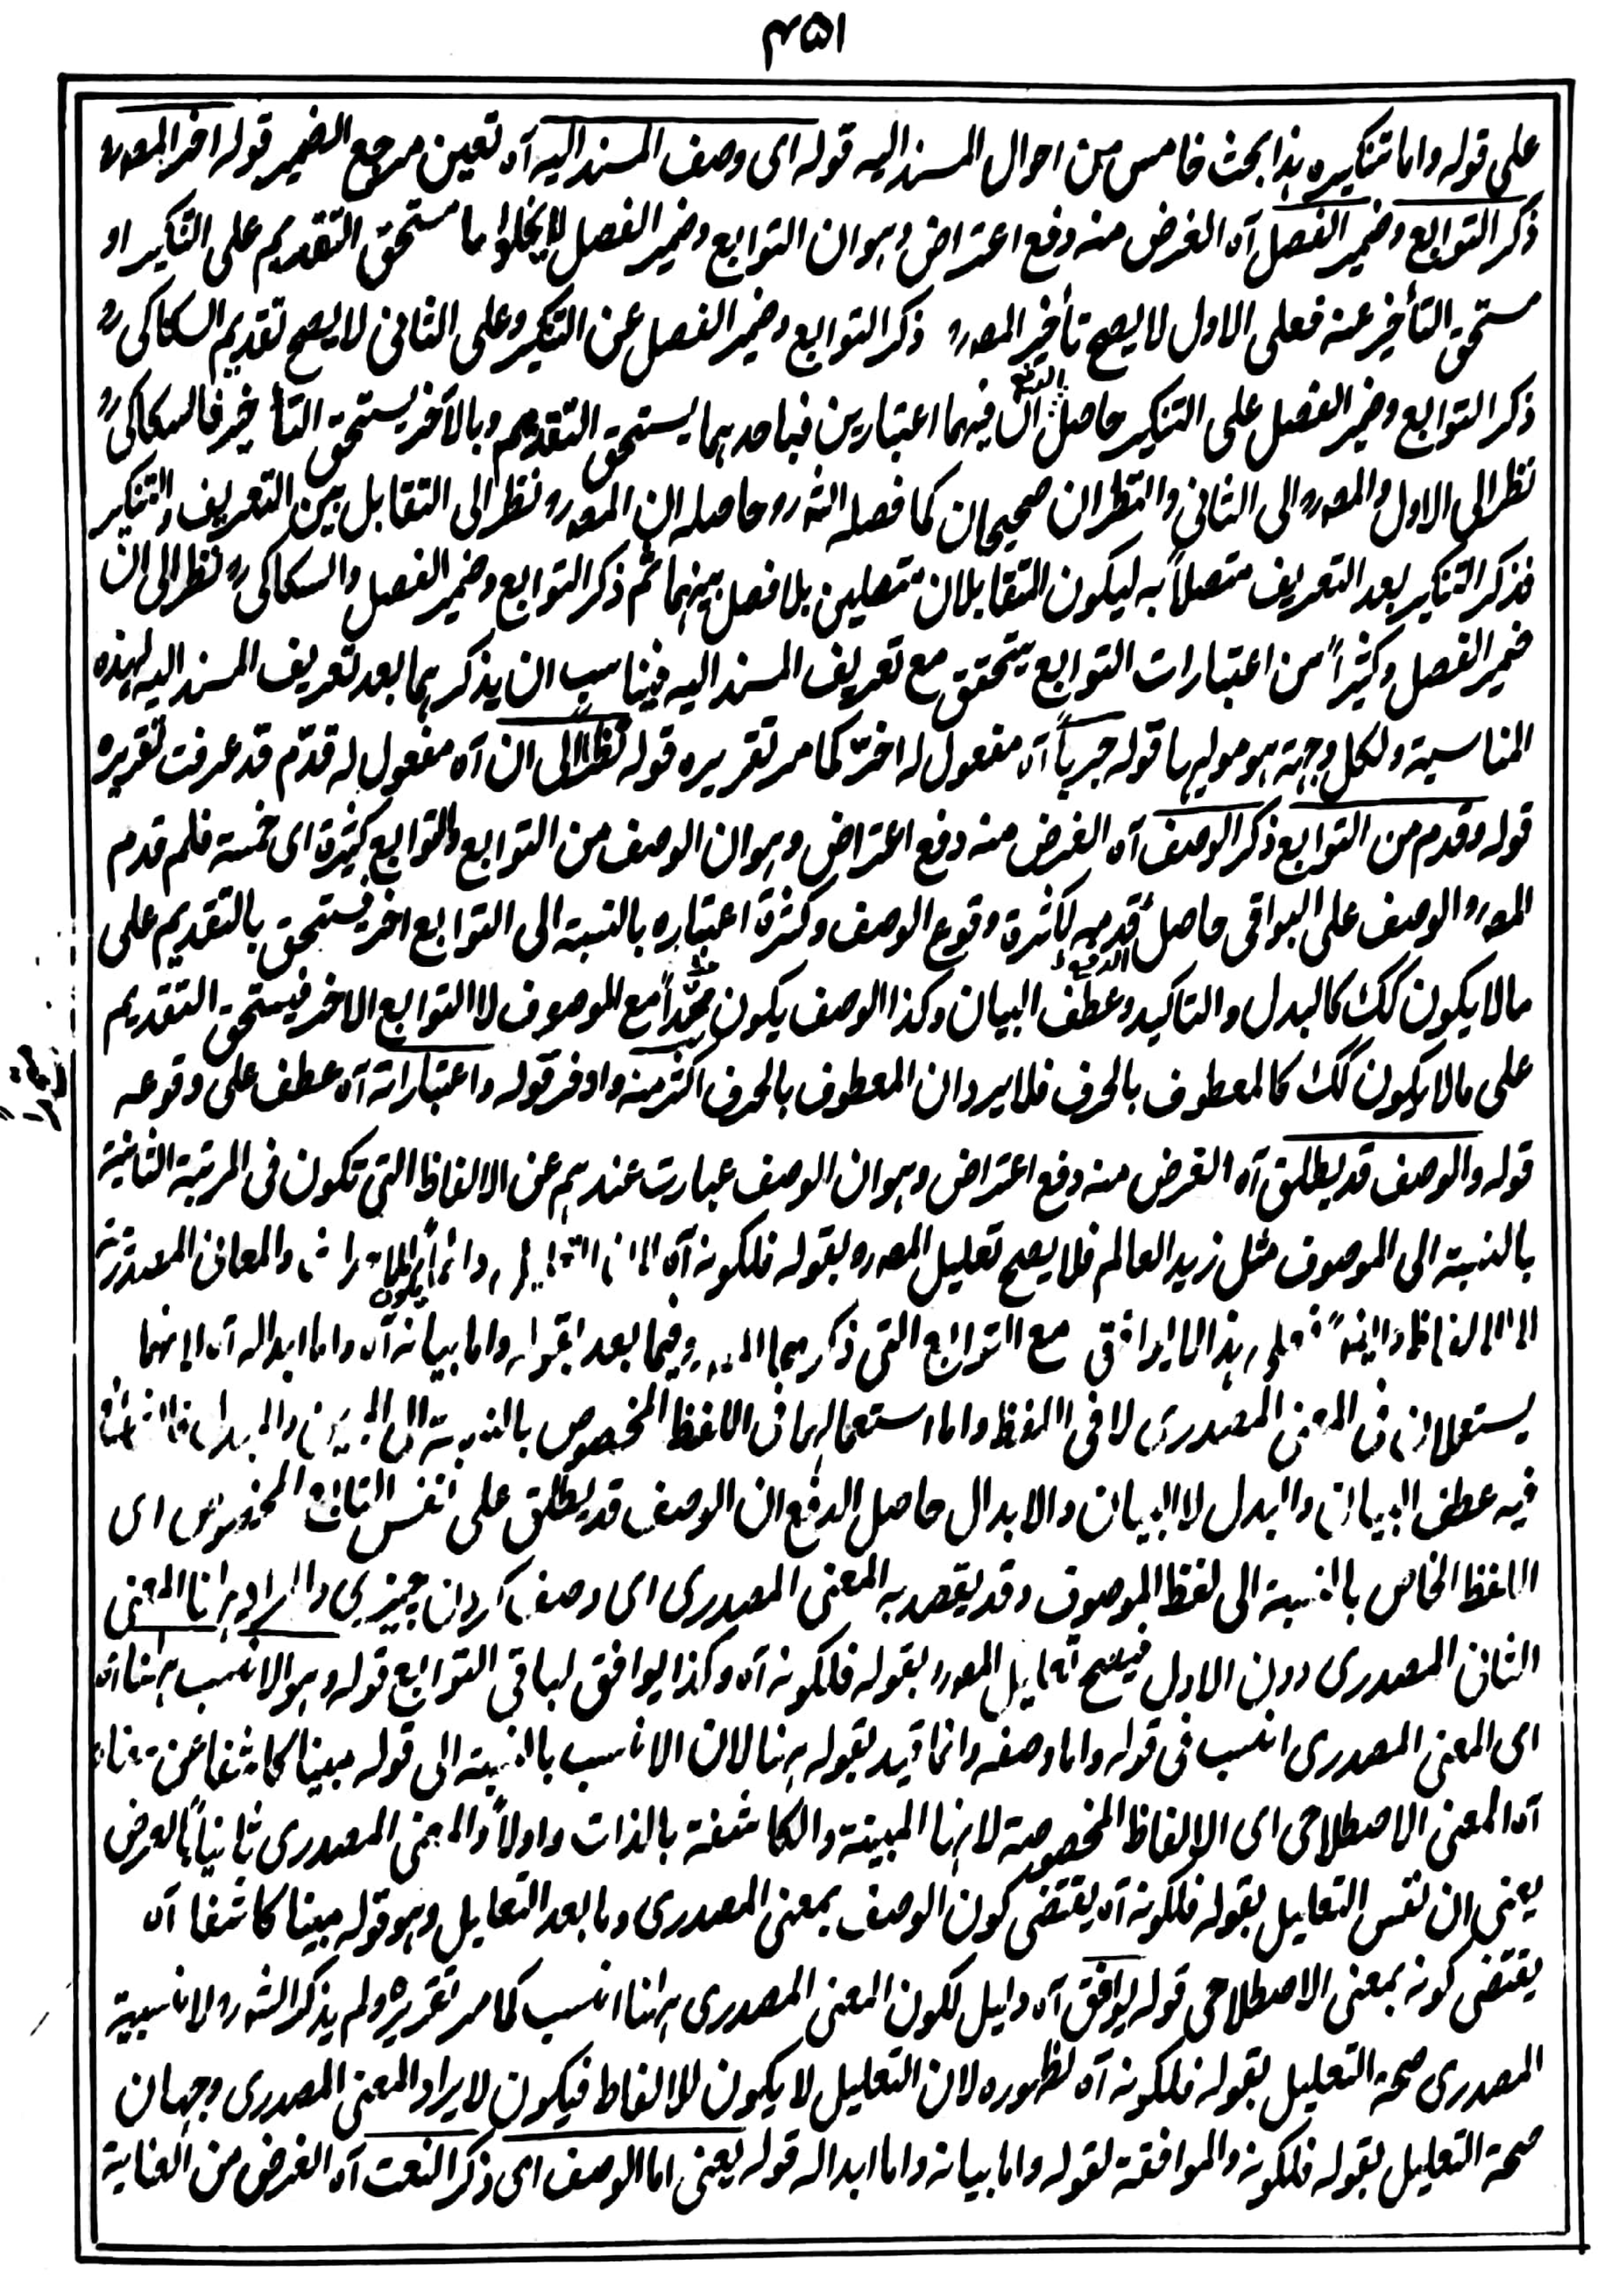 ۴۵۱
على قوله واما تنكيره هذا بحث خامس من احوال المسند اليه قوله اى وصف المسند اليه آه تعين مرجع الضمير قوله اخر المصرح
ذكر التوابع وضمير الفصل آه الغرض منه دفع اعتراض وهو ان التوابع وضمير الفصل لا يخلو اما مستحق التقديم على التنكير او
مستحق التأخير عنه فعلى الاول لا يصح تأخير المصرح ذكر التوابع وضمير الفصل عن التنكير وعلى الثانى لا يصح تقديم السكاكى رح
ذكر التوابع وضمير الفصل على التنكير حاصل الدفع ان فيهما اعتبارين فباحدهما يستحق التقديم وبالآخر يستحق التأخير فالسكاكى رح
نظر الى الاول والمصرح الى الثانى والنظران صحيحان كما فصله الشرح وحاصله ان المصرح نظر الى التقابل بين التعريف والتنكير
فذكر التنكير بعد التعريف متصلاً به ليكون المتقابلان متصلين بلا فصل بينهما ثم ذكر التوابع وضمير الفصل والسكاكى رح نظر الى ان
ضمير الفصل وكثيراً من اعتبارات التوابع يتحقق مع تعريف المسند اليه فيناسب ان يذكرهما بعد تعريف المسند اليه لهذه
المناسبة ولكل وجهة هو موليها قوله جرياً آه مفعول له اخرّ كما مر تقريره قوله نظراً الى ان آه مفعول له قدّم قد عرفت تقريره
قوله وقدم من التوابع ذكر الوصف آه الغرض منه دفع اعتراض وهو ان الوصف من التوابع والتوابع كثيرة اى خمسة فلم قدم
المصرح الوصف على البواقى حاصل الدفع قدمه لكثرة وقوع الوصف وكثرة اعتباره بالنسبة الى التوابع اخر فيستحق بالتقديم على
ما لا يكون كك كالبدل والتاكيد وعطف البيان وكذا الوصف يكون متحداً مع الموصوف لا التوابع الاخر فيستحق التقديم
على ما لا يكون كك كالمعطوف بالحرف فلا يرد ان المعطوف بالحرف اكثر منه واوفر قوله واعتباراته آه عطف على وقوعه
قوله والوصف قد يطلق آه الغرض منه دفع اعتراض وهو ان الوصف عبارت عندهم عن الالفاظ التى تكون فى المرتبة الثانية
بالنسبة الى الموصوف مثل زيد العالم فلا يصح تعليل المصرح بقوله فلكونه آه والمعانى المصدرية
مع التوابع التى ذكرها وفيما بعد بقوله واما بيانه آه واما ابداله آه لانهما
يستعملان فى المعنى المصدرى لا فى اللفظ واما استعمالهما فى اللفظ المخصوص بالنسبة الى
فيه عطف البيان والبدل لا البيان والابدال حاصل الدفع ان الوصف قد يطلق على نفس التابع المخصوص اى
اللفظ الخاص بالنسبة الى لفظ الموصوف وقد يقصد به المعنى المصدرى اى وصف كردن چيزى والمراد ههنا المعنى
الثانى المصدرى دون الاول فيصح تعليل المصرح بقوله فلكونه آه وكذا يوافق لباقى التوابع قوله وهو الانسب ههنا آه
اى المعنى المصدرى انسب فى قوله واما وصفه وانما قيد بقوله ههنا لان الانسب بالنسبة الى قوله مبينا كاشفا عن معناه
آه المعنى الاصطلاحى اى الالفاظ المخصوصة لانها المبينة والكاشفة بالذات واولاً والمعنى المصدرى ثانياً بالعرض
يعنى ان نفس التعليل بقوله فلكونه آه يقتضى كون الوصف بمعنى المصدرى وما بعد التعليل وهو قوله مبينا كاشفا آه
يقتضى كونه بمعنى الاصطلاحى قوله ليوافق آه دليل لكون المعنى المصدرى ههنا انسب كما مر تقريره ولم يذكر الشرح لانسبية
المصدرى صحة التعليل بقوله فلكونه آه لظهوره لان التعليل لا يكون للالفاظ فيكون لايراد المعنى المصدرى وجهان
صحة التعليل بقوله فلكونه والموافقة لقوله واما بيانه واما ابداله قوله يعنى اما الوصف اى ذكر النعت آه الغرض من العناية